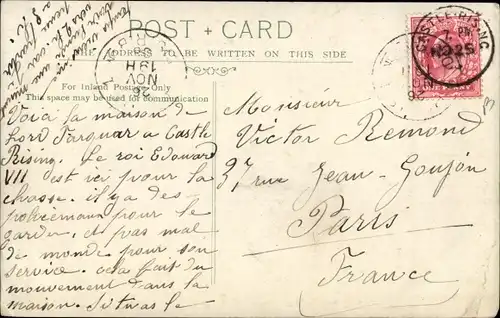 POST + CARD
THE ADDRESS TO BE WRITTEN ON THIS SIDE
For Inland Postage Only
This space may be used for communication
Voici la maison de
Lord Farquar a Castle
Rising. Le roi Edouard
VII est ici pour la
chasse. il y a des
policemans pour le
garder, et pas mal
de monde pour son
service. cela fait du
mouvement dans la
maison. Si tu as le
temps
Monsieur
Victor Remond
37, rue Jean-Goujon
Paris
France
NOV
26